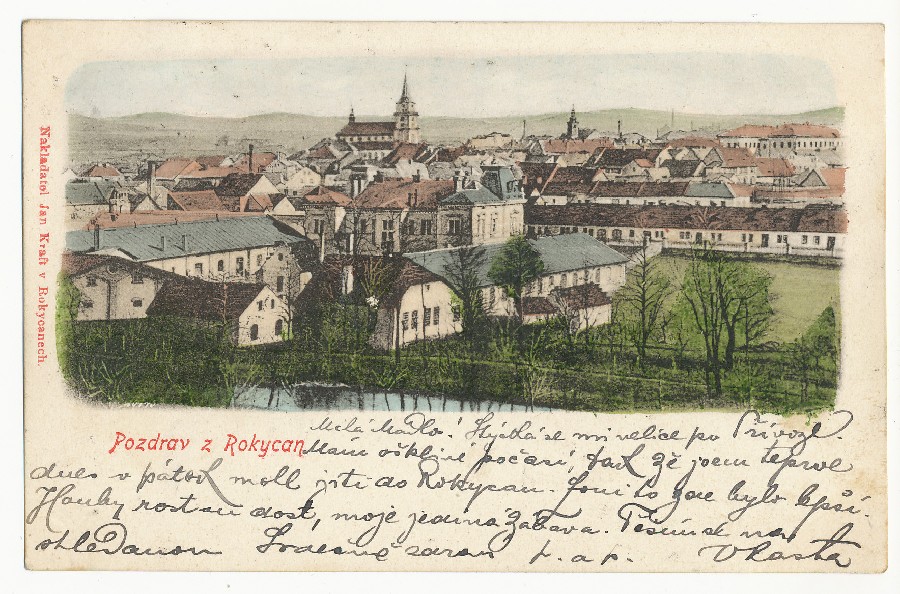 Nakladatel Jan Kraft v Rokycanech.
Pozdrav z Rokycan.
Milá Mádlo! Stýská se mi velice po Přívozě.
Mám ošklivé počasí, tak že jsem teprve
dnes v pátek mohl jíti do Rokycan. Loni to zde bylo lepší.
Houby rostou dost, moje jediná zábava. Těším se na
shledanou Srdečně zdraví t. a p. Vlasta